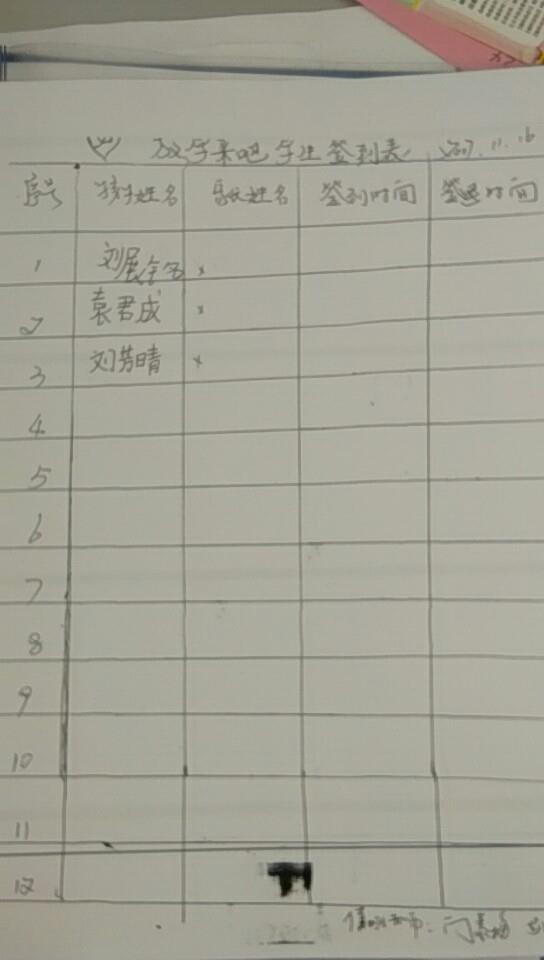 放学来吧学生签到表 11.16
序号 孩子姓名 家长姓名 签到时间 签退时间
1 刘展铭 x
2 袁君成 x
3 刘芳晴 x
4
5
6
7
8
9
10
11
12
值班老师: